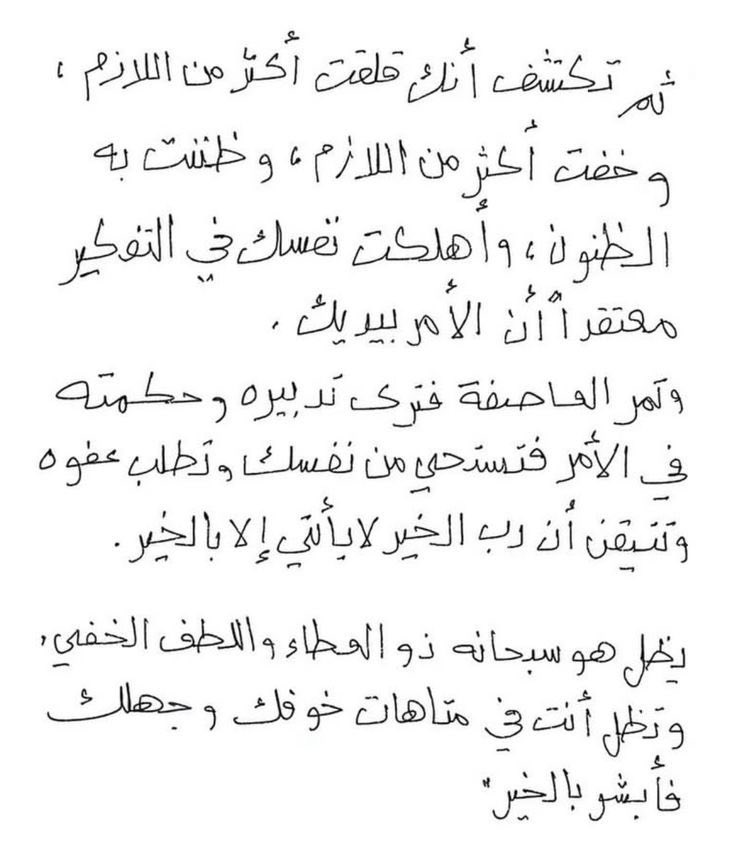 ثم تكتشف أنك قلقت أكثر من اللازم ،
و خفت أكثر من اللازم ، و ظننت به
الظنون ، وأهلكت نفسك في التفكير
معتقداً أن الأمر بيديك .
وتمر العاصفة فترى تدبيره و حكمته
في الأمر فتستحي من نفسك وتطلب عفوه
وتتيقن أن رب الخير لا يأتي إلا بالخير .
يظل هو سبحانه ذو العطاء واللطف الخفي،
وتظل أنت في متاهات خوفك وجهلك
فأبشر بالخير"